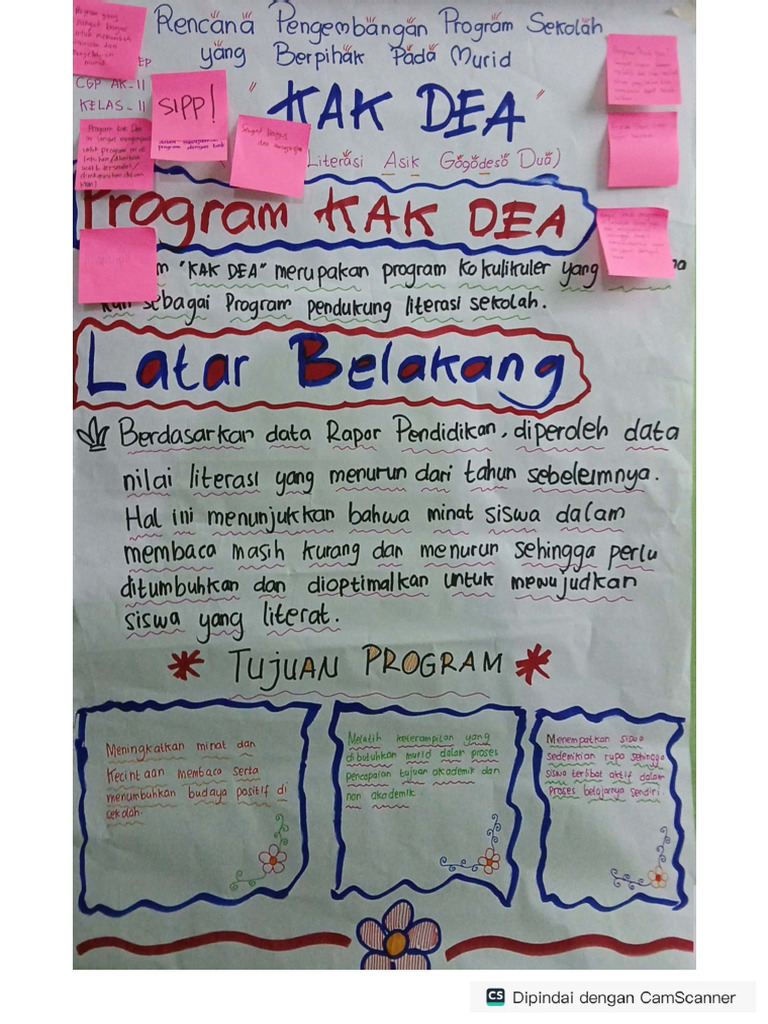 Rencana Pengembangan Program Sekolah
yang Berpihak Pada Murid
EP
CGP AK-11
KELAS-11
SIPP!
"KAK DEA"
Literasi Asik Gogodeso Dua)
Program KAK DEA
"KAK DEA" merupakan program kokulikuler yang
sebagai Program pendukung literasi sekolah.
Latar Belakang
Berdasarkan data Rapor Pendidikan, diperoleh data
nilai literasi yang menurun dari tahun sebelumnya.
Hal ini menunjukkan bahwa minat siswa dalam
membaca masih kurang dan menurun sehingga perlu
ditumbuhkan dan dioptimalkan untuk mewujudkan
siswa yang literat.
TUJUAN PROGRAM
Meningkatkan minat dan
kecintaan membaca serta
menumbuhkan budaya positif di
sekolah.
Melatih keterampilan yang
dibutuhkan murid dalam proses
pencapaian tujuan akademik dan
non akademik
Menempatkan siswa
sedemikian rupa sehingga
siswa terlibat aktif dalam
proses belajarnya sendiri.
CS Dipindai dengan CamScanner